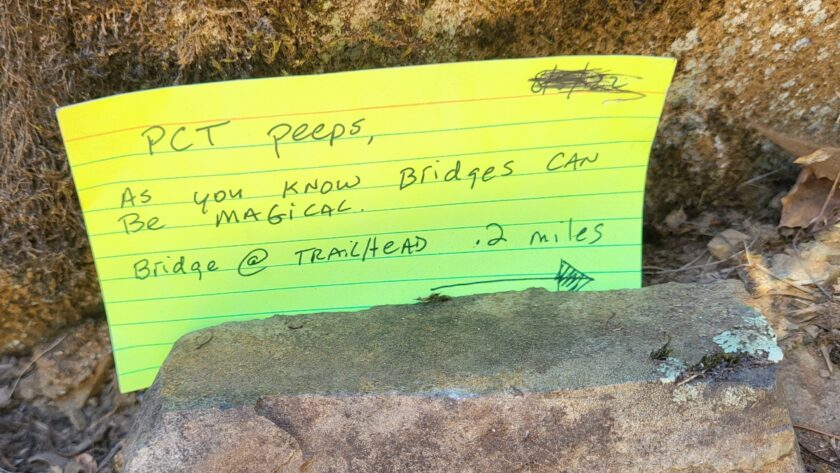 PCT peeps,
AS you KNOW Bridges CAN
Be MAGICAL.
Bridge @ TRAILHEAD .2 miles